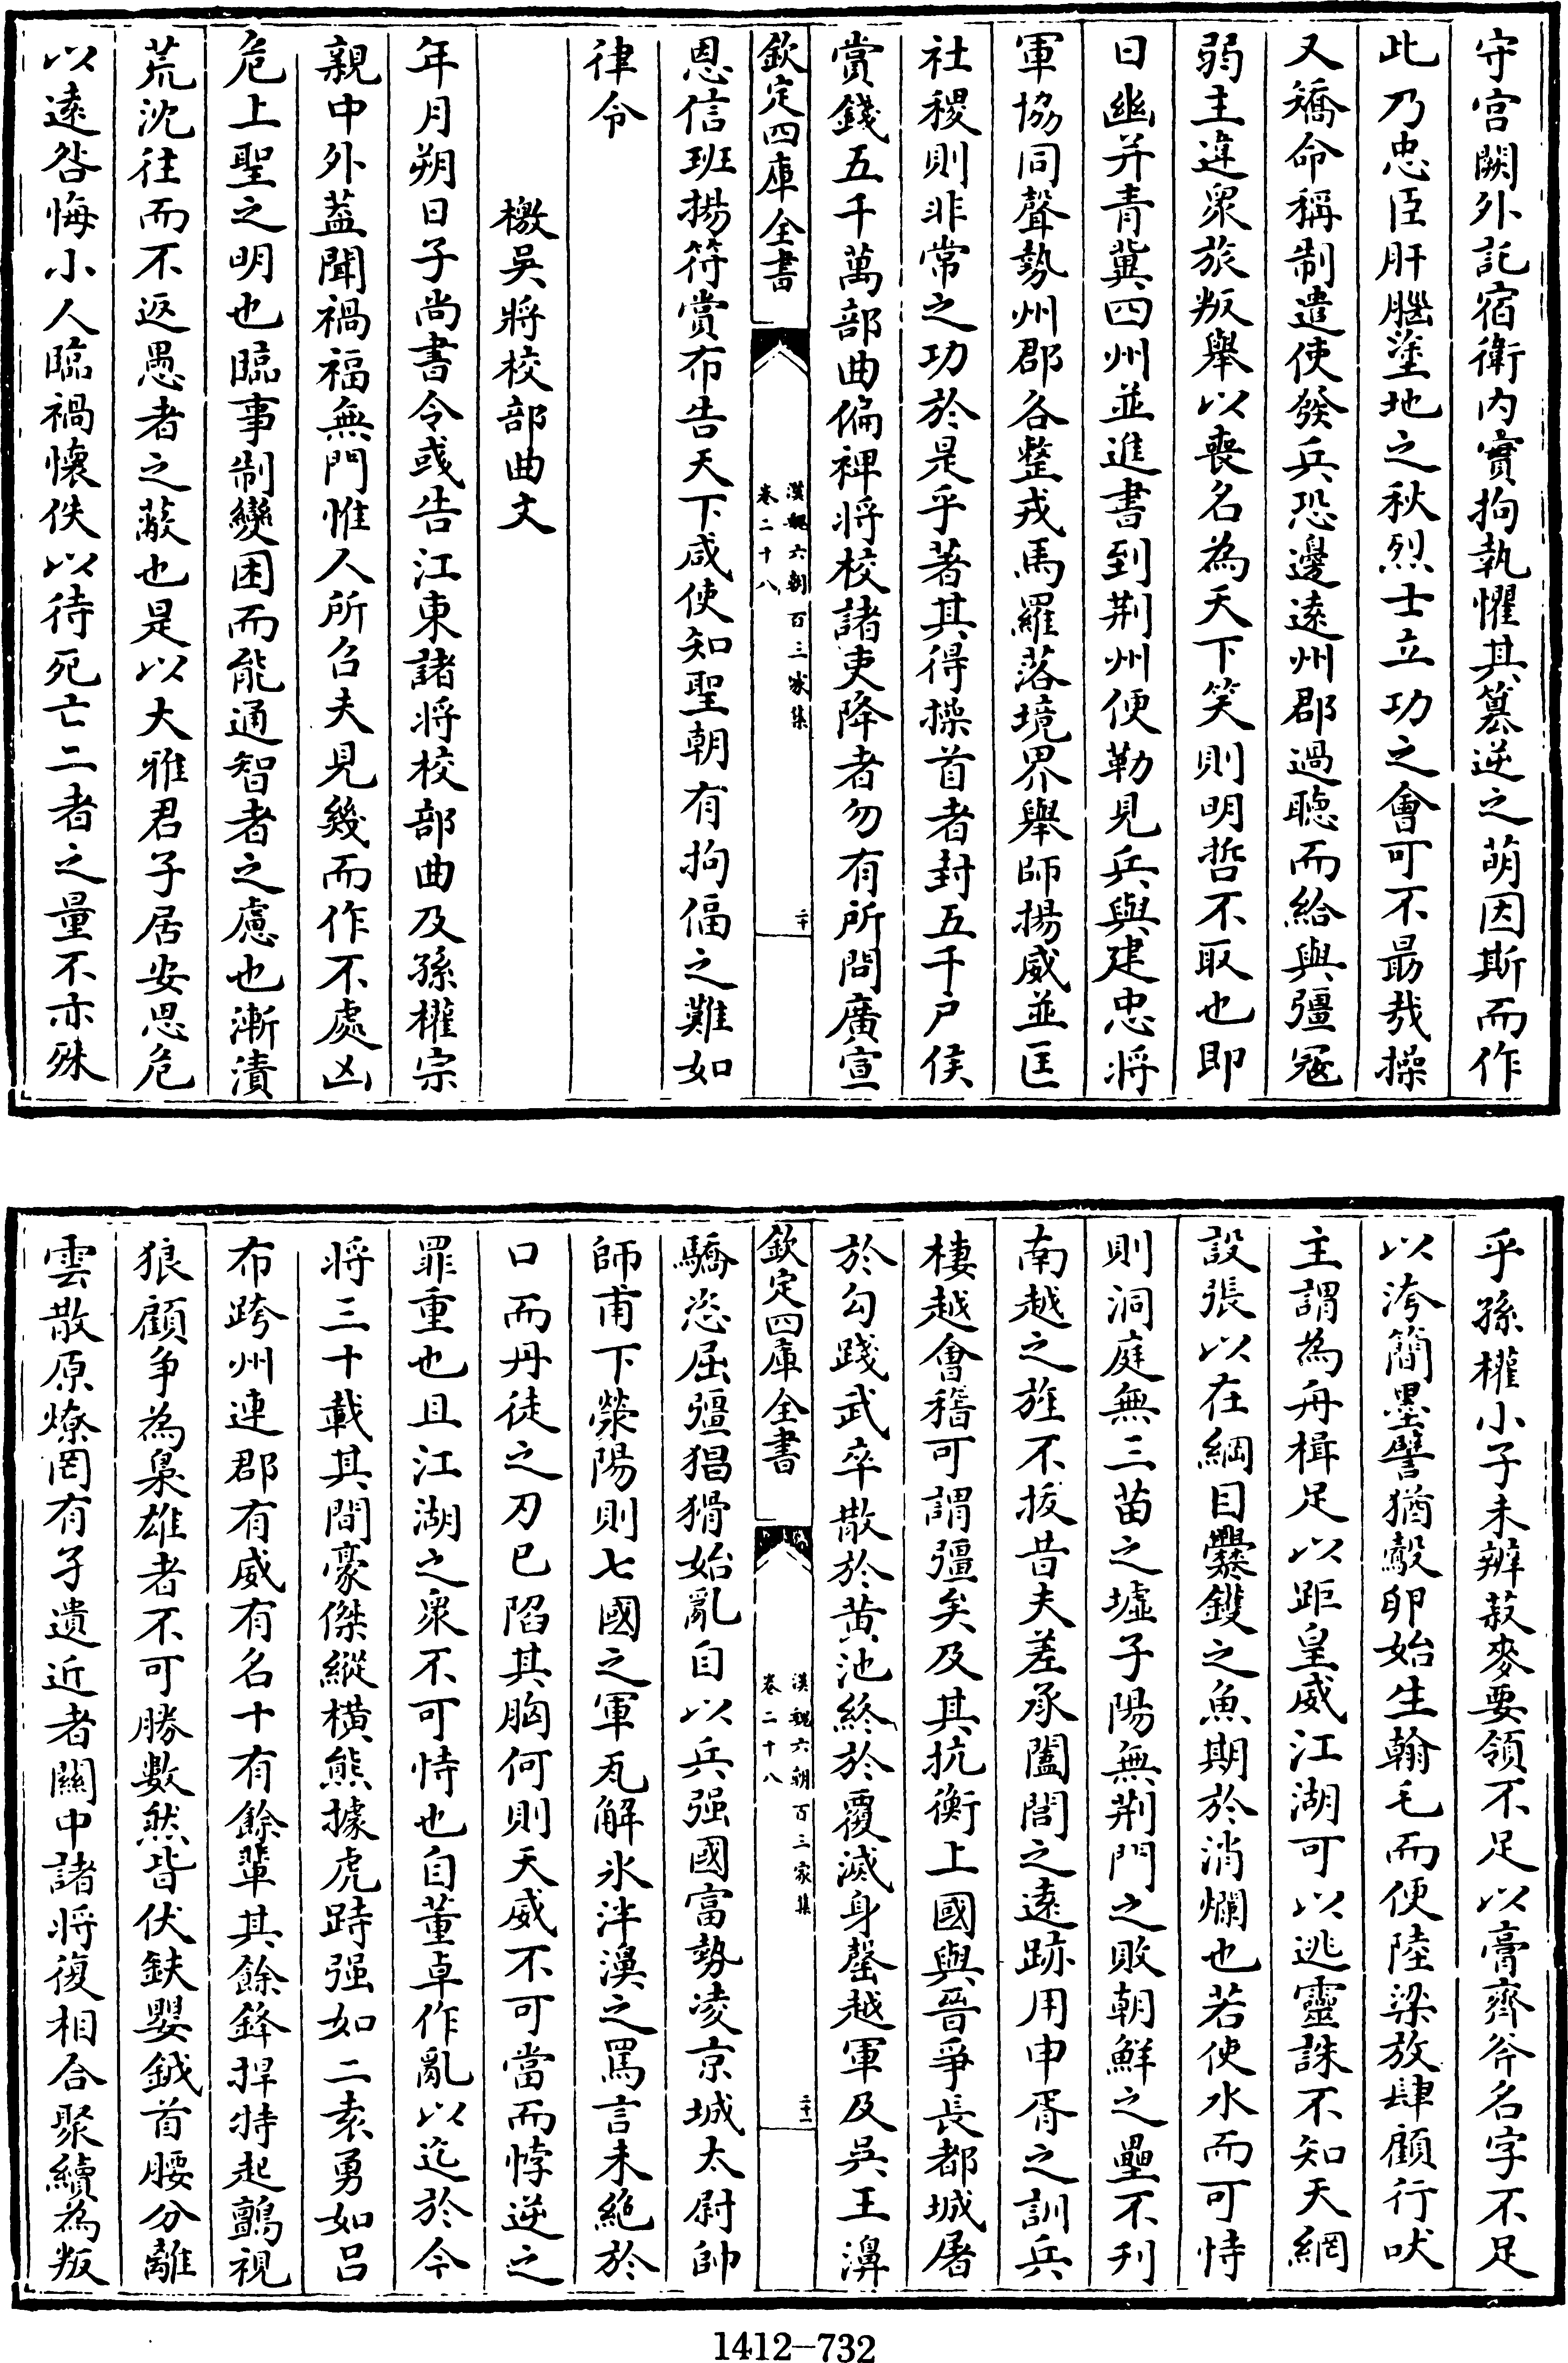 守宫闕外託宿衛内實拘執懼其篡逆之萌因斯而作
此乃忠臣肝腦塗地之秋烈士立功之會可不勗哉操
又矯命稱制遣使發兵恐邊逺州郡過聽而給與彊宼
弱主違衆旅叛舉以喪名為天下笑則明哲不取也即
日幽并青冀四州並進書到荆州便勒見兵與建忠將
軍協同聲勢州郡各整戎馬羅落境界舉師揚威並匡
社稷則非常之功於是乎著其得操首者封五千户侯
賞錢五千萬部曲偏禆將校諸吏降者勿有所問廣宣
欽定四庫全書
漢魏六朝百三家集
卷二十八
二十
恩信班揚符賞布告天下咸使知聖朝有拘偪之難如
律令
檄吳將校部曲文
年月朔日子尚書令彧告江東諸將校部曲及孫權宗
親中外葢聞禍福無門惟人所召夫見幾而作不處凶
危上聖之明也臨事制變困而能通智者之慮也漸漬
荒沈往而不返愚者之蔽也是以大雅君子居安思危
以逺咎悔小人臨禍懐佚以待死亡二者之量不亦殊
乎孫權小子未辨菽麥要領不足以膏齊斧名字不足
以洿簡墨譬猶鷇卵始生翰毛而便陸梁放肆顧行吠
主謂為舟楫足以距皇威江湖可以逃靈誅不知天網
設張以在綱目爨鑊之魚期於消爛也若使水而可恃
則洞庭無三苗之墟子陽無荆門之敗朝鮮之壘不刋
南越之旌不拔昔夫差承闔閭之逺跡用申胥之訓兵
棲越會稽可謂彊矣及其抗衡上國與晉爭長都城屠
於勾踐武卒散於黄池終於覆滅身罄越軍及吳王濞
欽定四庫全書
漢魏六朝百三家集
卷二十八
二十一
驕恣屈彊猖猾始亂自以兵强國富勢凌京城太尉帥
師甫下滎陽則七國之軍瓦解氷泮濞之罵言未絶於
口而丹徒之刃已陷其胸何則天威不可當而悖逆之
罪重也且江湖之衆不可恃也自董卓作亂以迄於今
將三十載其間豪傑縱横熊據虎跱强如二袁勇如吕
布跨州連郡有威有名十有餘輩其餘鋒捍特起鸇視
狼顧爭為梟雄者不可勝數然皆伏鈇嬰鉞首腰分離
雲散原燎罔有孑遺近者關中諸將復相合聚續為叛
1412-732